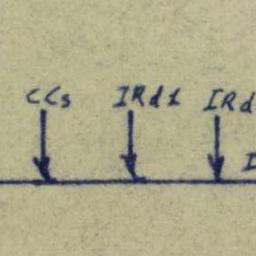 CCs IRd1 IRd
I